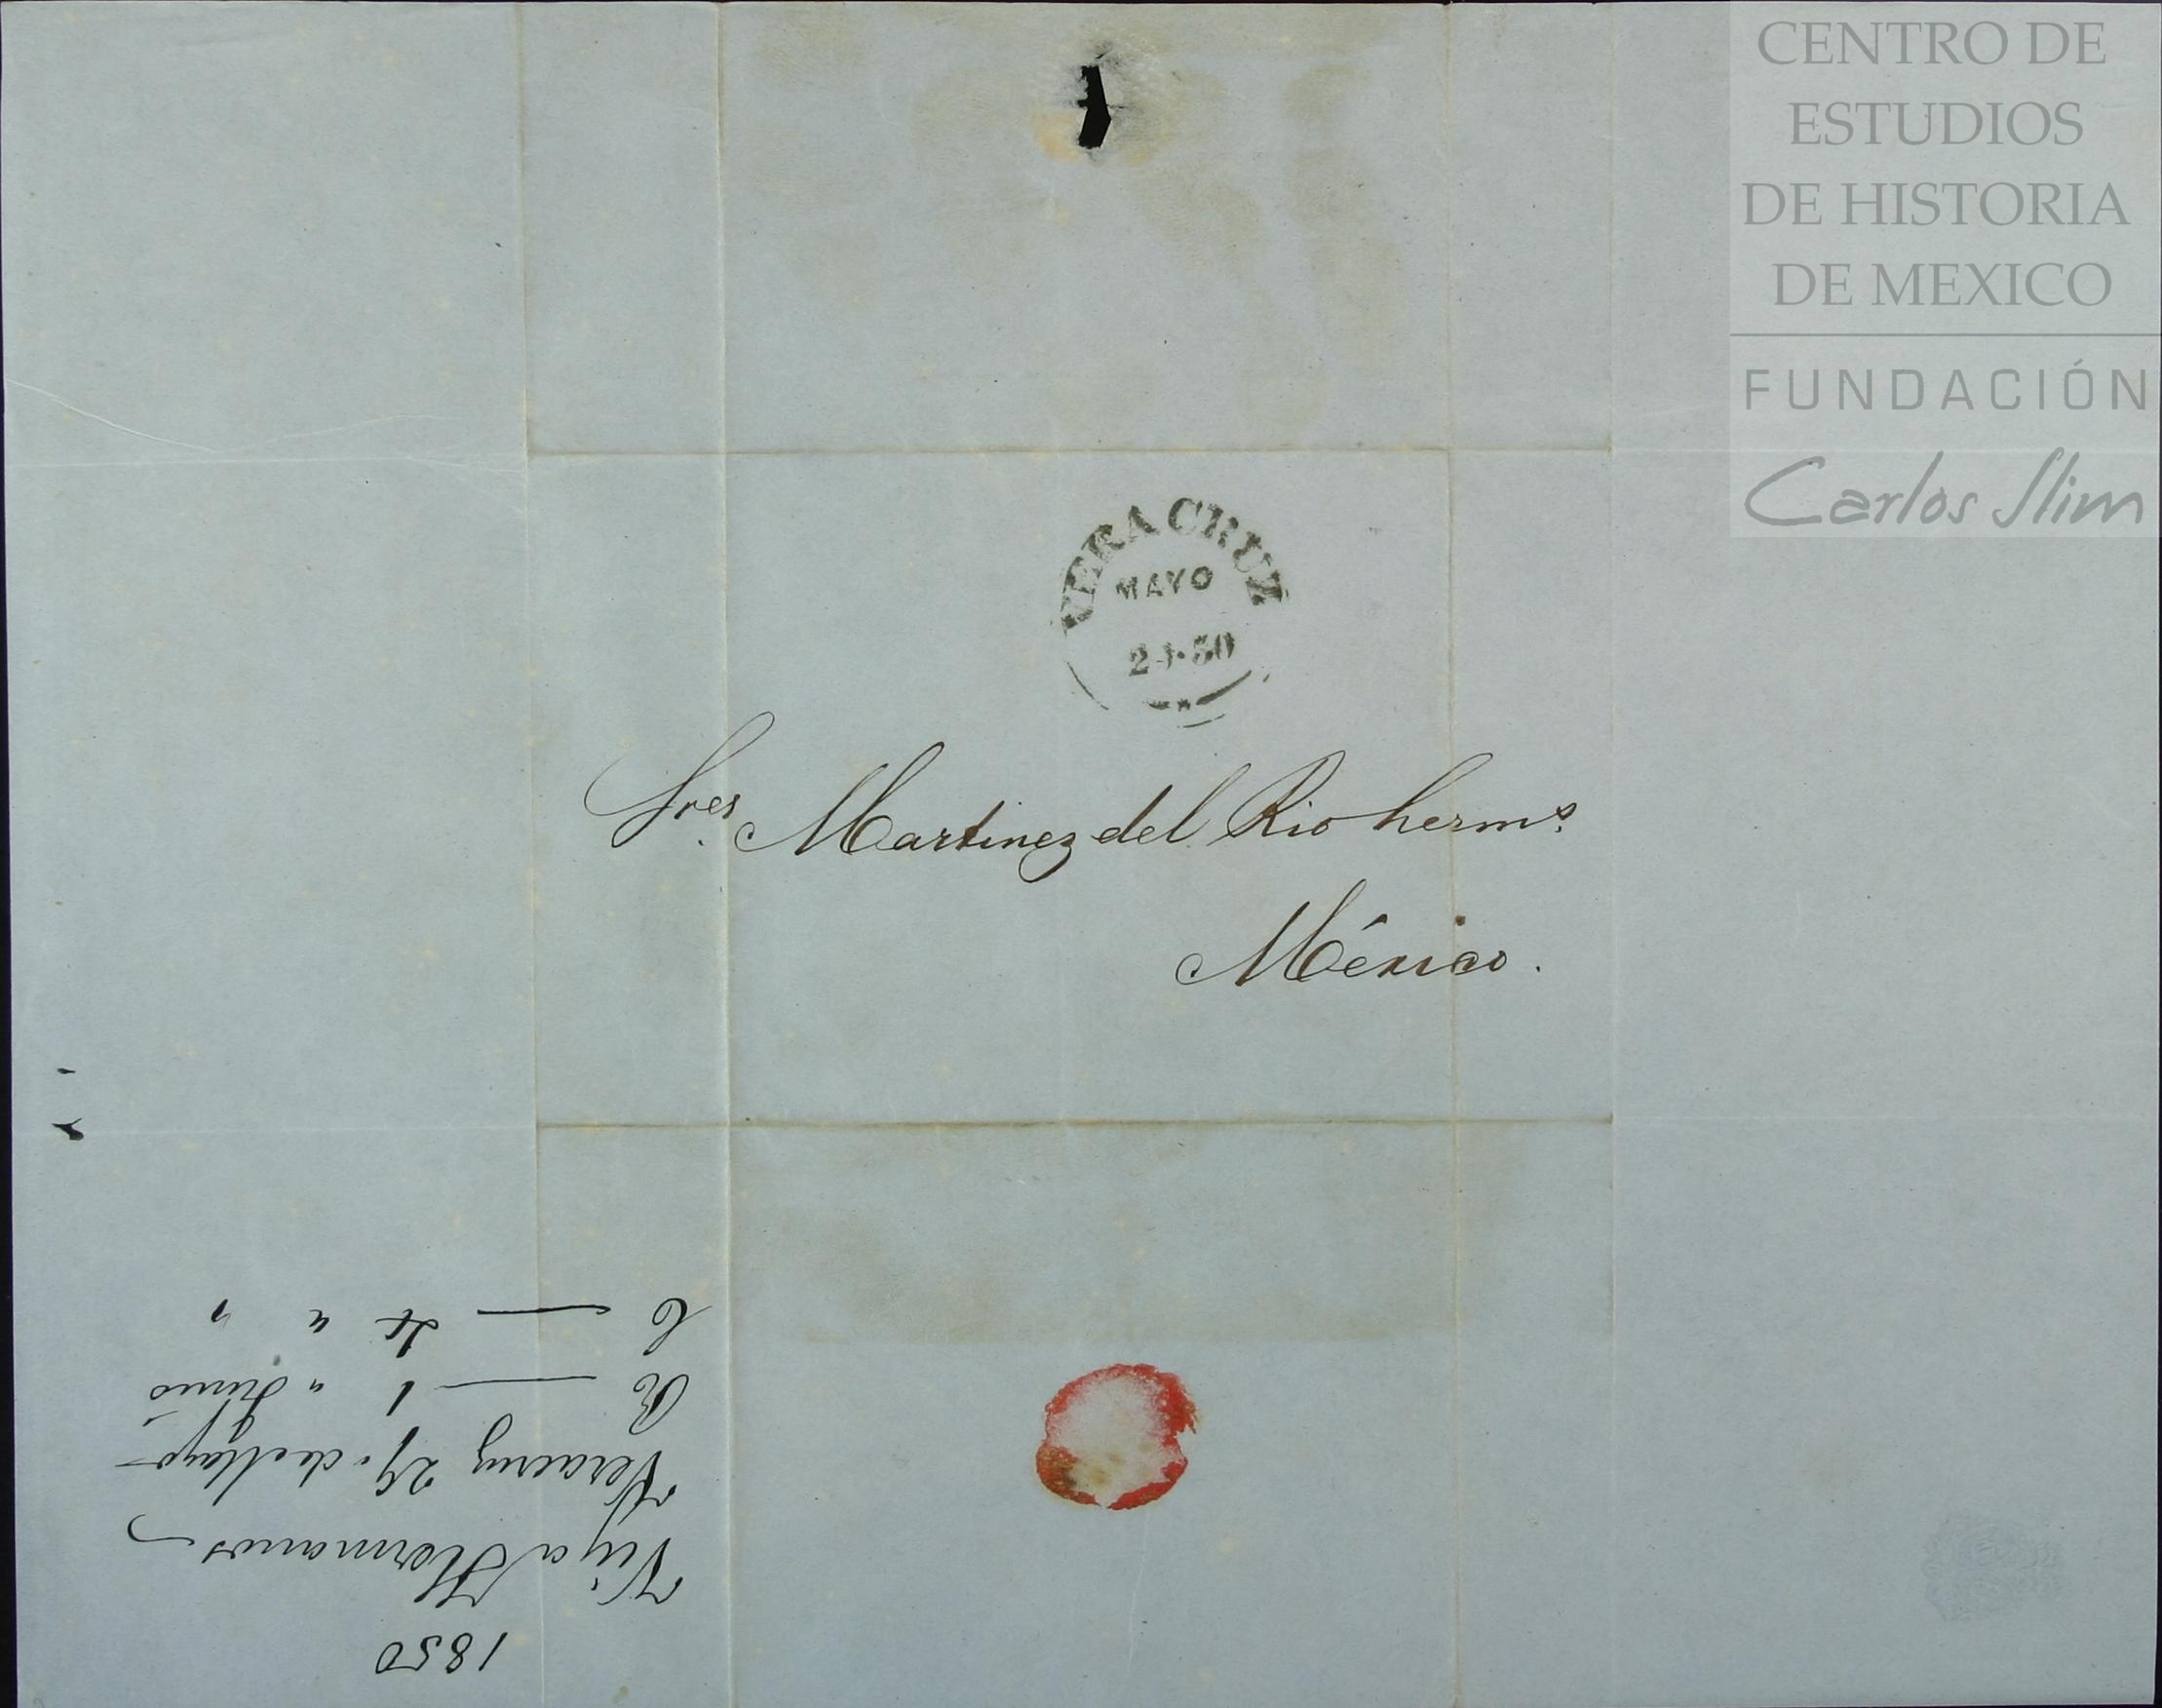 CENTRO DE
ESTUDIOS
DE HISTORIA
DE MEXICO
FUNDACIÓN
Carlos Slim
VERA CRUZ
MAYO
50
Sres. Martinez del Rio herms.
México.
1850
Hermanos
Veracruz 29. de Mayo
R — 1 " Junio
C — 4 " "